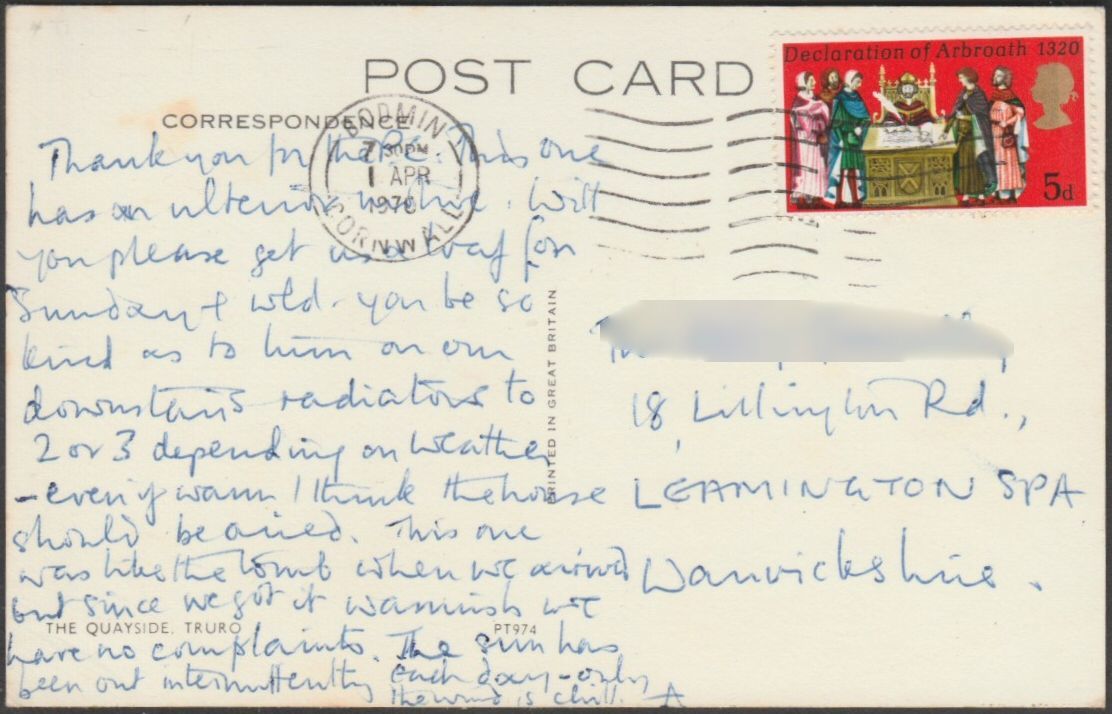 POST CARD
Declaration of Arbroath 1320
5d
CORRESPONDENCE
BODMIN
7 30PM
1 APR
1970
CORNWALL
Thank you for This one
has an ulterior motive. Will
you please get us a loaf for
Sunday & wld. you be so
kind as to turn on our
downstairs radiators to
2 or 3 depending on weather
- even if warm I think the house
should be aired. This one
was like the tomb when we arrived
but since we got it warmish we
have no complaints. The sun has
been out intermittently each day - only
the wind is chill. A
THE QUAYSIDE, TRURO
PT974
PRINTED IN GREAT BRITAIN
18, Lillington Rd.,
LEAMINGTON SPA
Warwickshire.